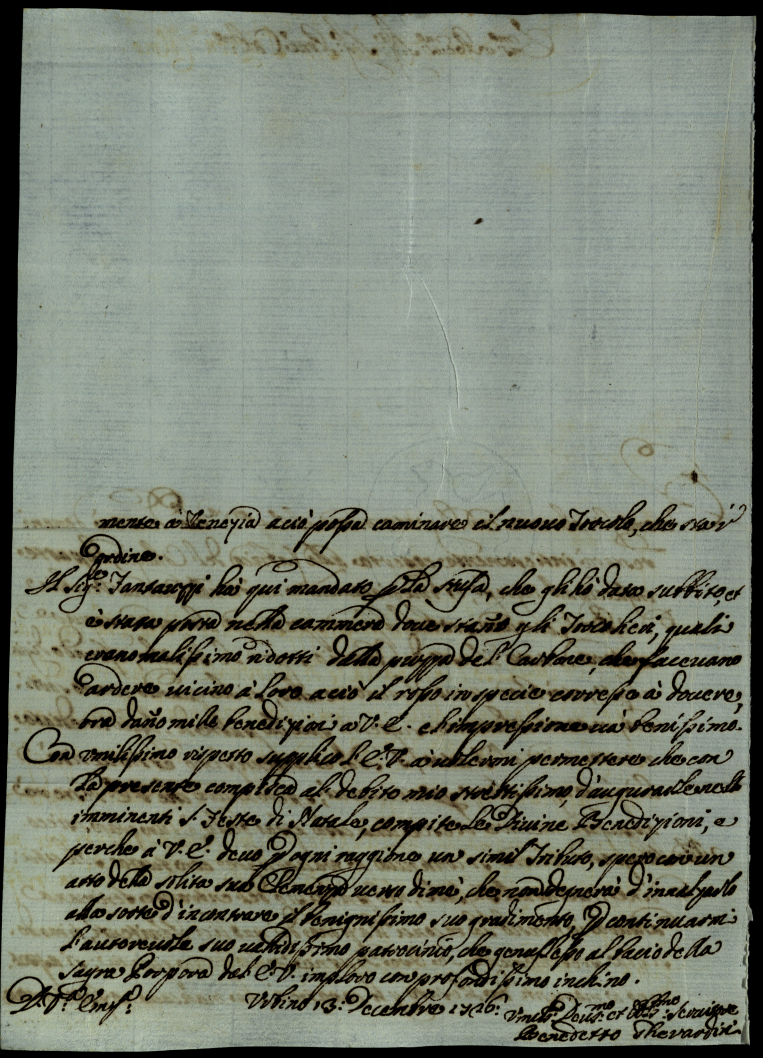 mente à Venezia acciò possa caminare il nuovo Torcolo, che stà
ordine.
Il Sig.r Fantauzzi hà qui mandato p la stufa, che gli hò data subbito, et
è stata posta nella cammera dove stanno gli Torcolieri, quali
erano malissimo ridotti dalla puzza del Carbone, che facevano
ardere vicino à Loro acciò il rosso in specie corresse à dovere,
ora danno mille benedizioni à V. E. e l'impressione và benissimo.
Con umilissimo rispetto supplico l'E. V. à volermi permettere che con
la presente compisca al debito mio strettissimo, d'augurarle nelle
imminenti S. Feste di Natale, compite le Divine Benedizioni, e
perche à V. E. devo p ogni raggione un simil Tributo, spero con un
atto della solita sua Clemenza verso di me, che non sdegnerà d'innalzarlo
alla sorte d'incontrare il benignissimo suo gradimento, p continuarmi
l'autorevole suo validissimo patrocinio, che genuflesso al bacio della
Sagra Porpora dell'E. V. imploro con profondissimo inchino.
D. V.ra Em.za Urbino 13. Decembre 1726.
Umil.mo Devot.mo et Obl.mo Servitore
Benedetto